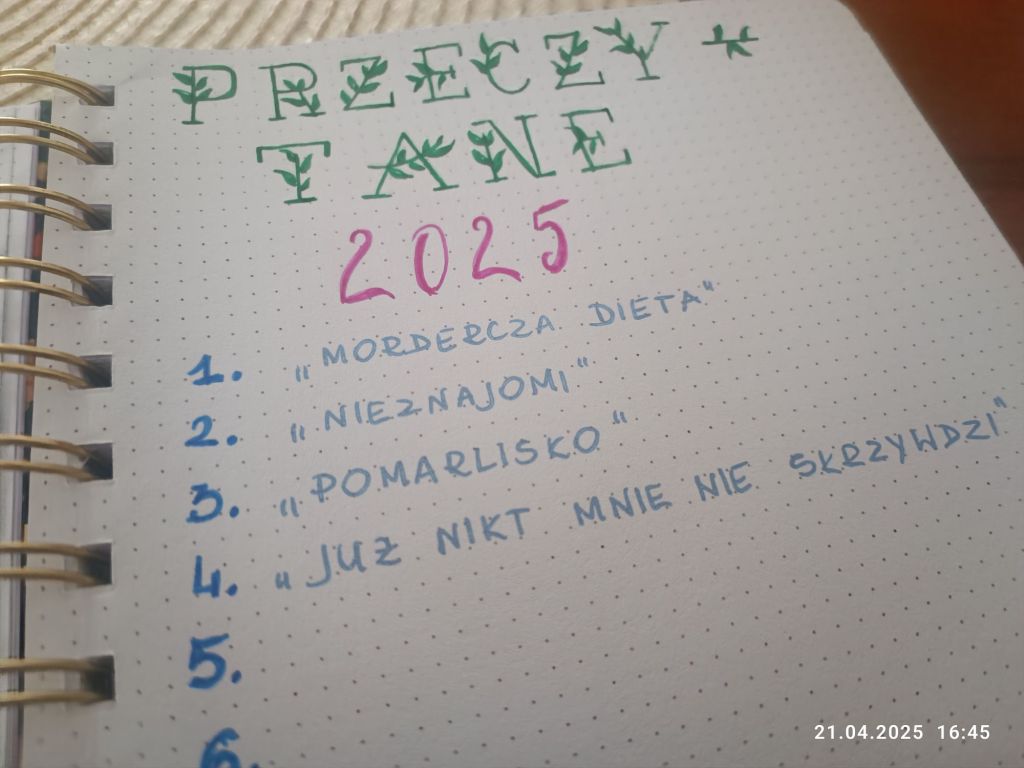 PRZECZY*
TANE
2025
1. „MORDERCZA DIETA"
2. „NIEZNAJOMI"
3. „POMARLISKO"
4. „JUŻ NIKT MNIE NIE SKRZYWDZI"
5.
6.
21.04.2025 16:45